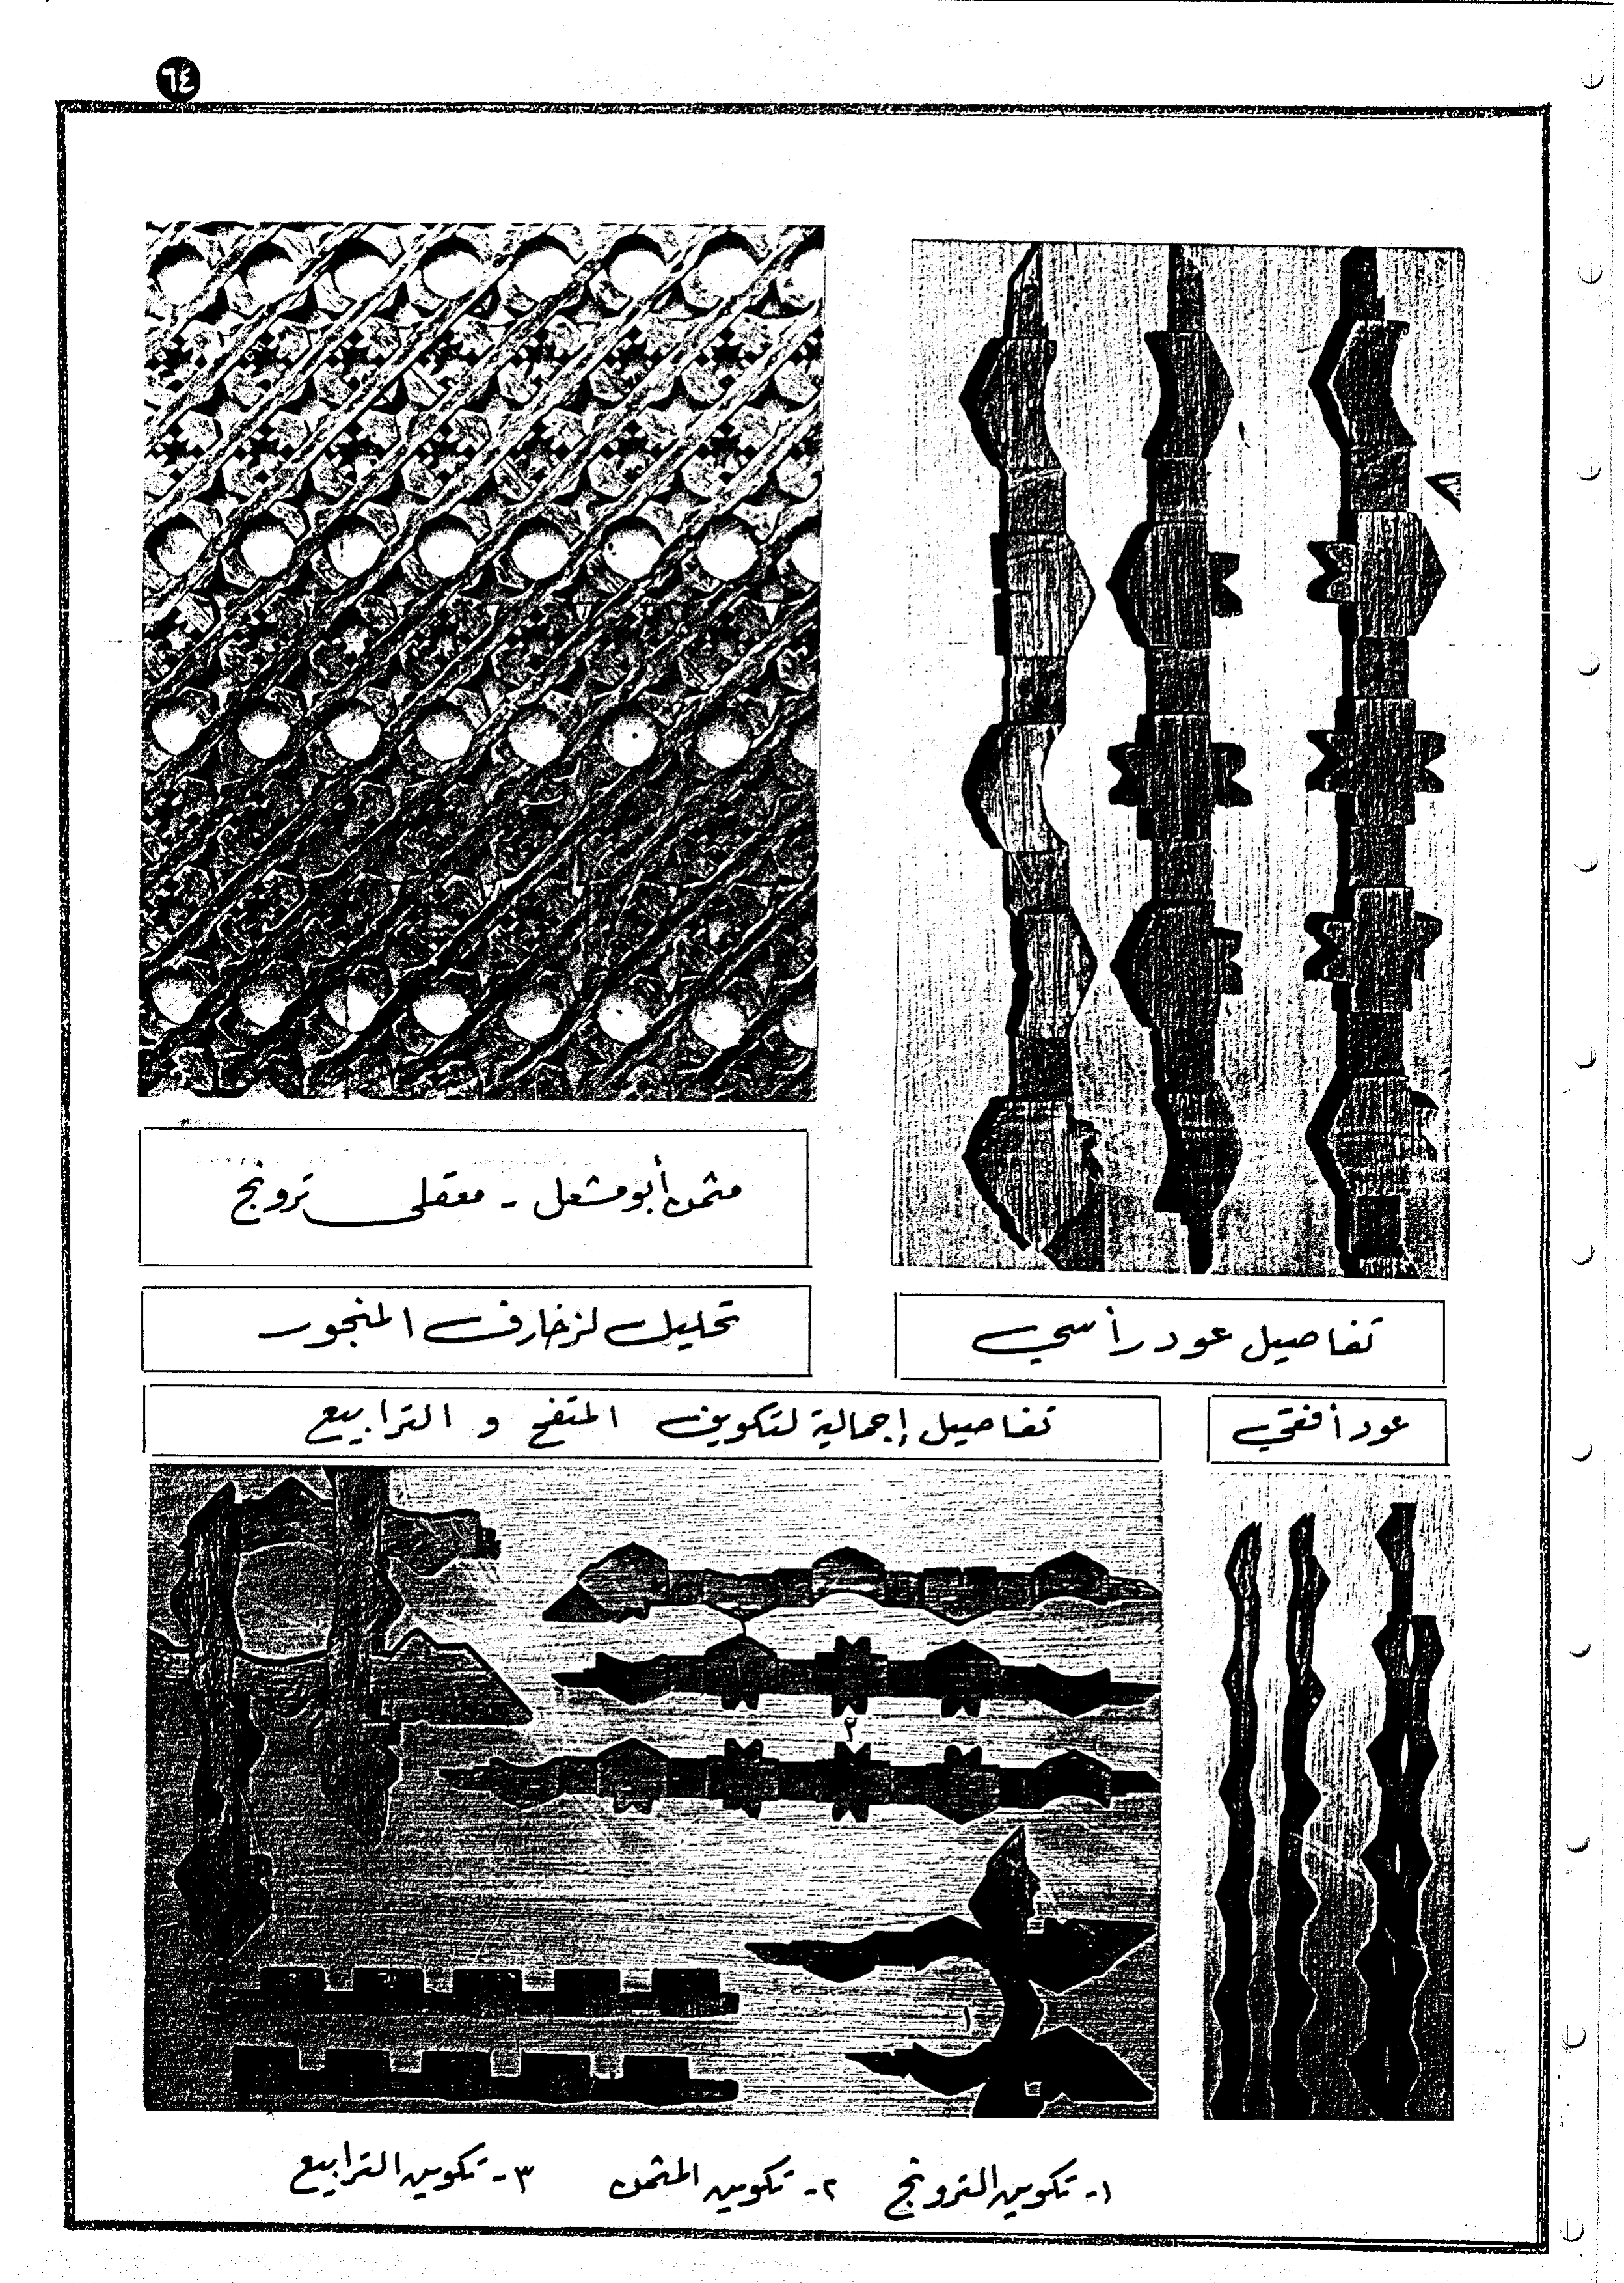 ٦٤
مثمن أبو مشعل - معقلى ترونج
تحليل لزخارف المنجور
تفاصيل عود رأسي
تفاصيل إجمالية لتكوين المتفخ و الترابيع
عود أفقي
٢
١
١- تكوين الترونج ٢- تكوين المثمن ٣- تكوين الترابيع